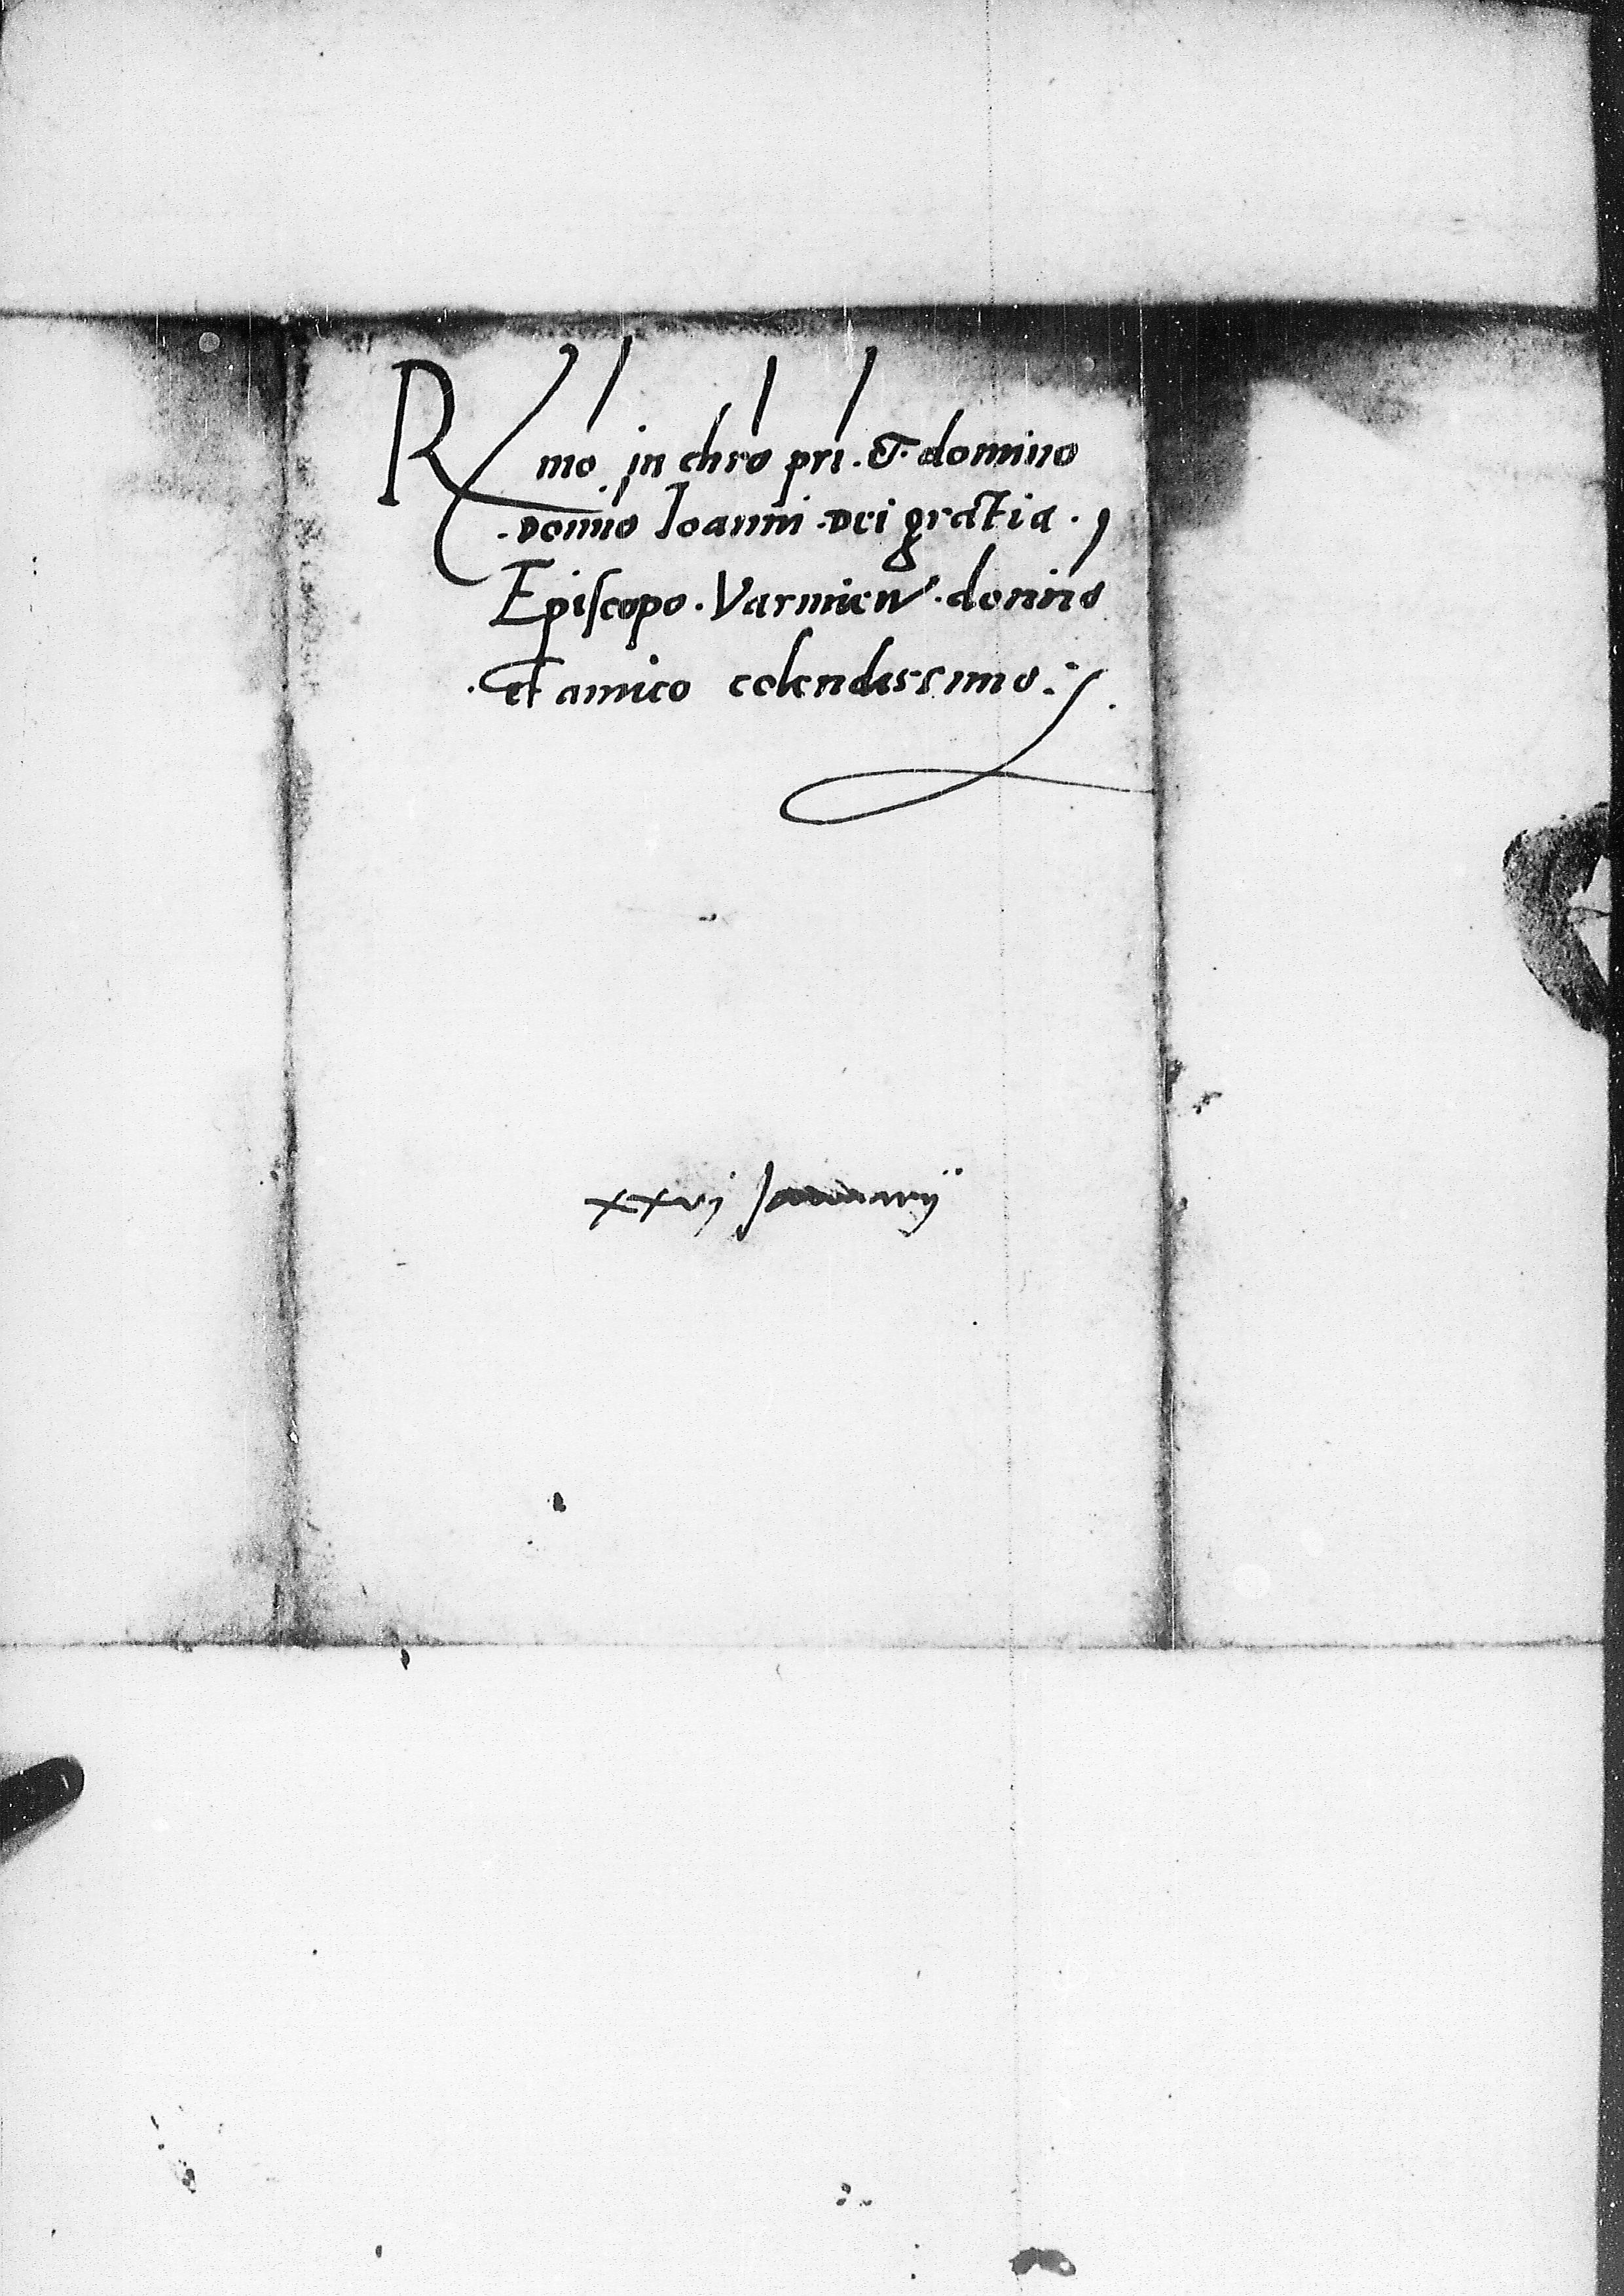 Rmo in chro pri. &. domino
.Domino Ioanni .Dei gratia.
Episcopo. Varmien .domino
.et amico colendissimo:
xxvj Januarij